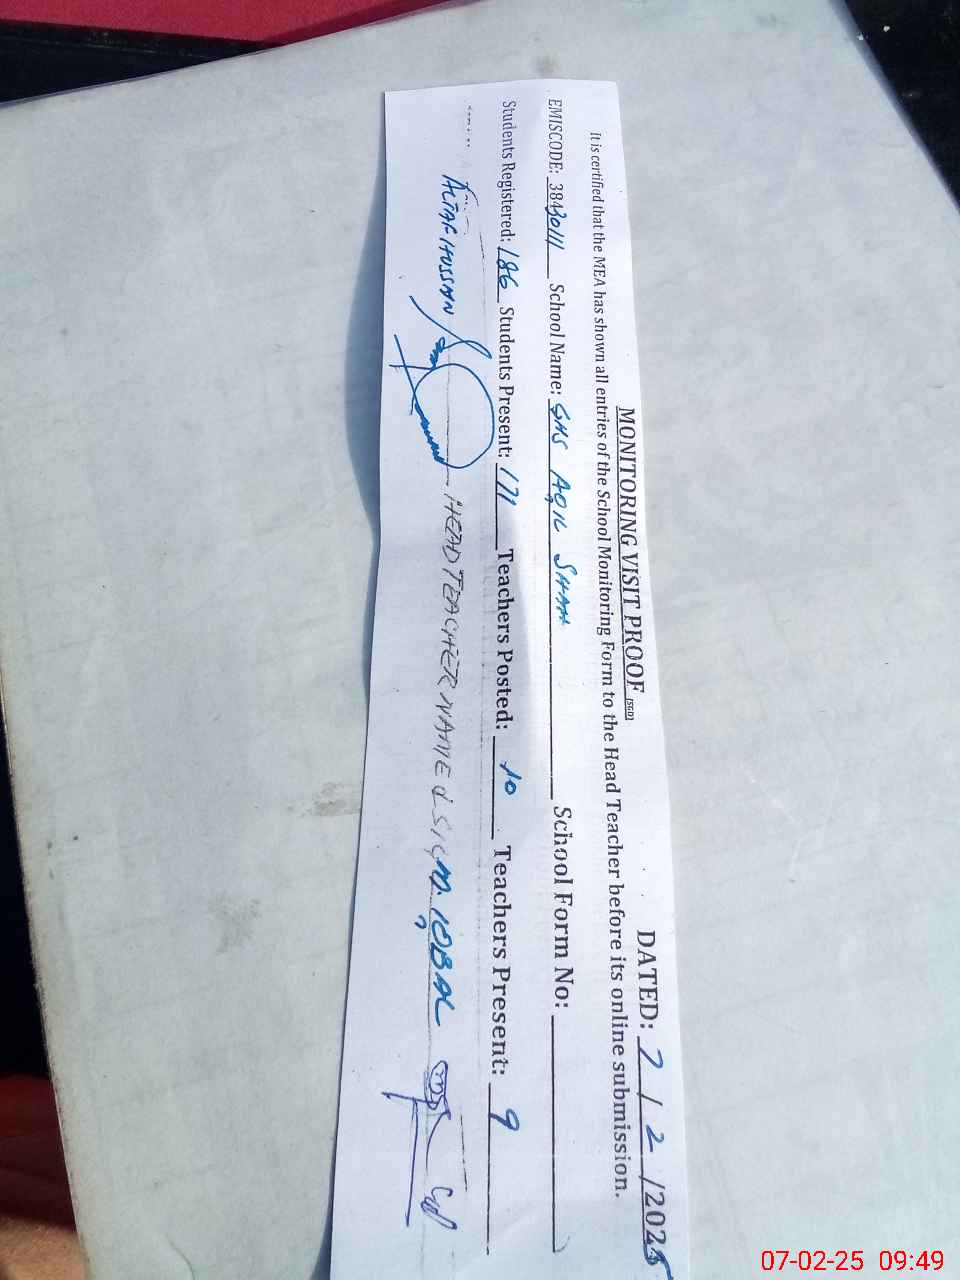 MONITORING VISIT PROOF (SGD) DATED: 7 / 2 /2025
It is certified that the MEA has shown all entries of the School Monitoring Form to the Head Teacher before its online submission.
EMISCODE: 38430111 School Name: GHS AQIL SHAH School Form No:
Students Registered: 186 Students Present: 171 Teachers Posted: 10 Teachers Present: 9
ALTAF HUSSAN HEAD TEACHER NAME & SIGN M. IQBAL
07-02-25 09:49